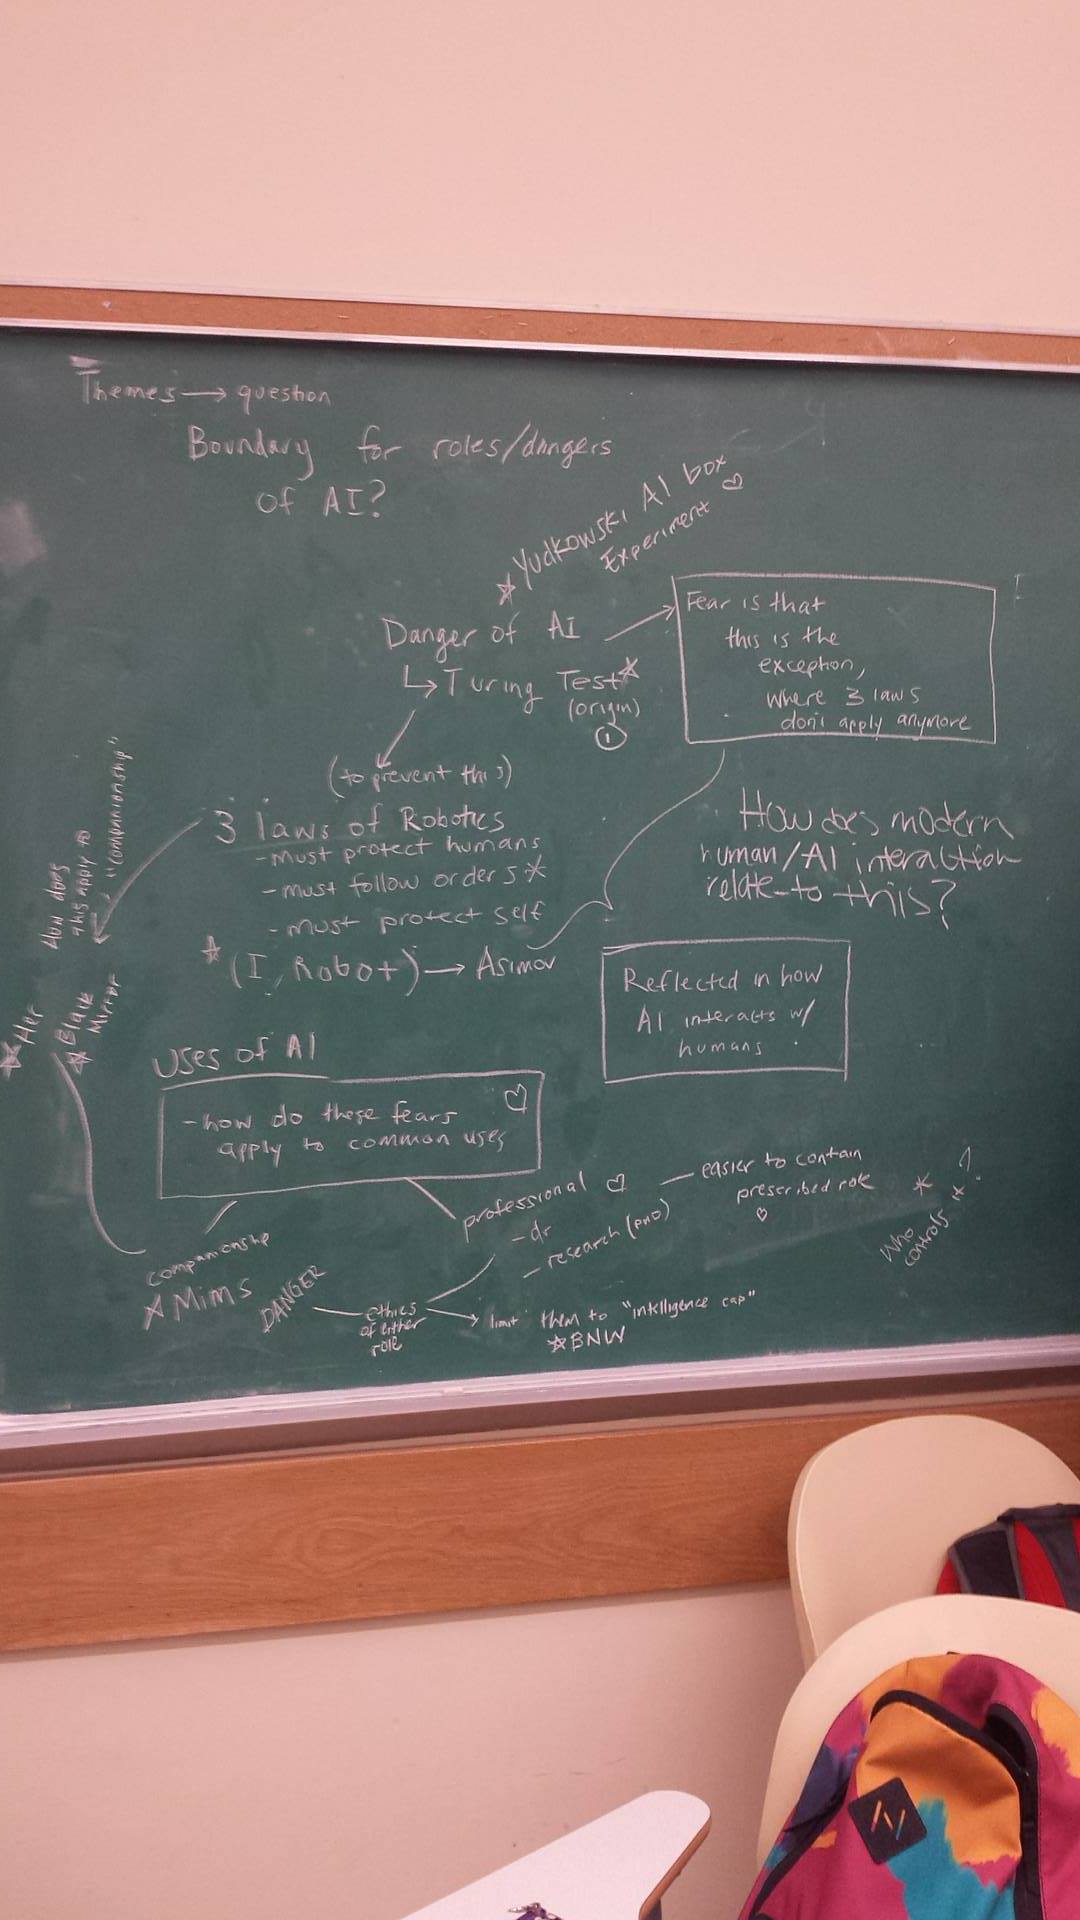 Themes → question
Boundary for roles/dangers
of AI?
☆ Yudkowski AI box
Experiment ♡
Danger of AI →
↳ Turing Test*
(origin)
①
Fear is that
this is the
exception,
where 3 laws
don't apply anymore
(to prevent this)
3 laws of Robotics
- Must protect humans
- must follow orders *
- must protect self
☆ (I, Robot) → Asimov
How does modern
human/AI interaction
relate to this?
Reflected in how
AI interacts w/
humans
How does
this apply to
"companionship"
☆ Her
☆ Black
Mirror
Uses of AI
- how do these fears
apply to common uses
♡
companionship
☆ Mims
DANGER
professional ♡
- dr
- research
easier to contain
prescribed role
♡
Who
controls
* * ?
ethics
of either
role
→ limit them to "intelligence cap"
☆ BNW